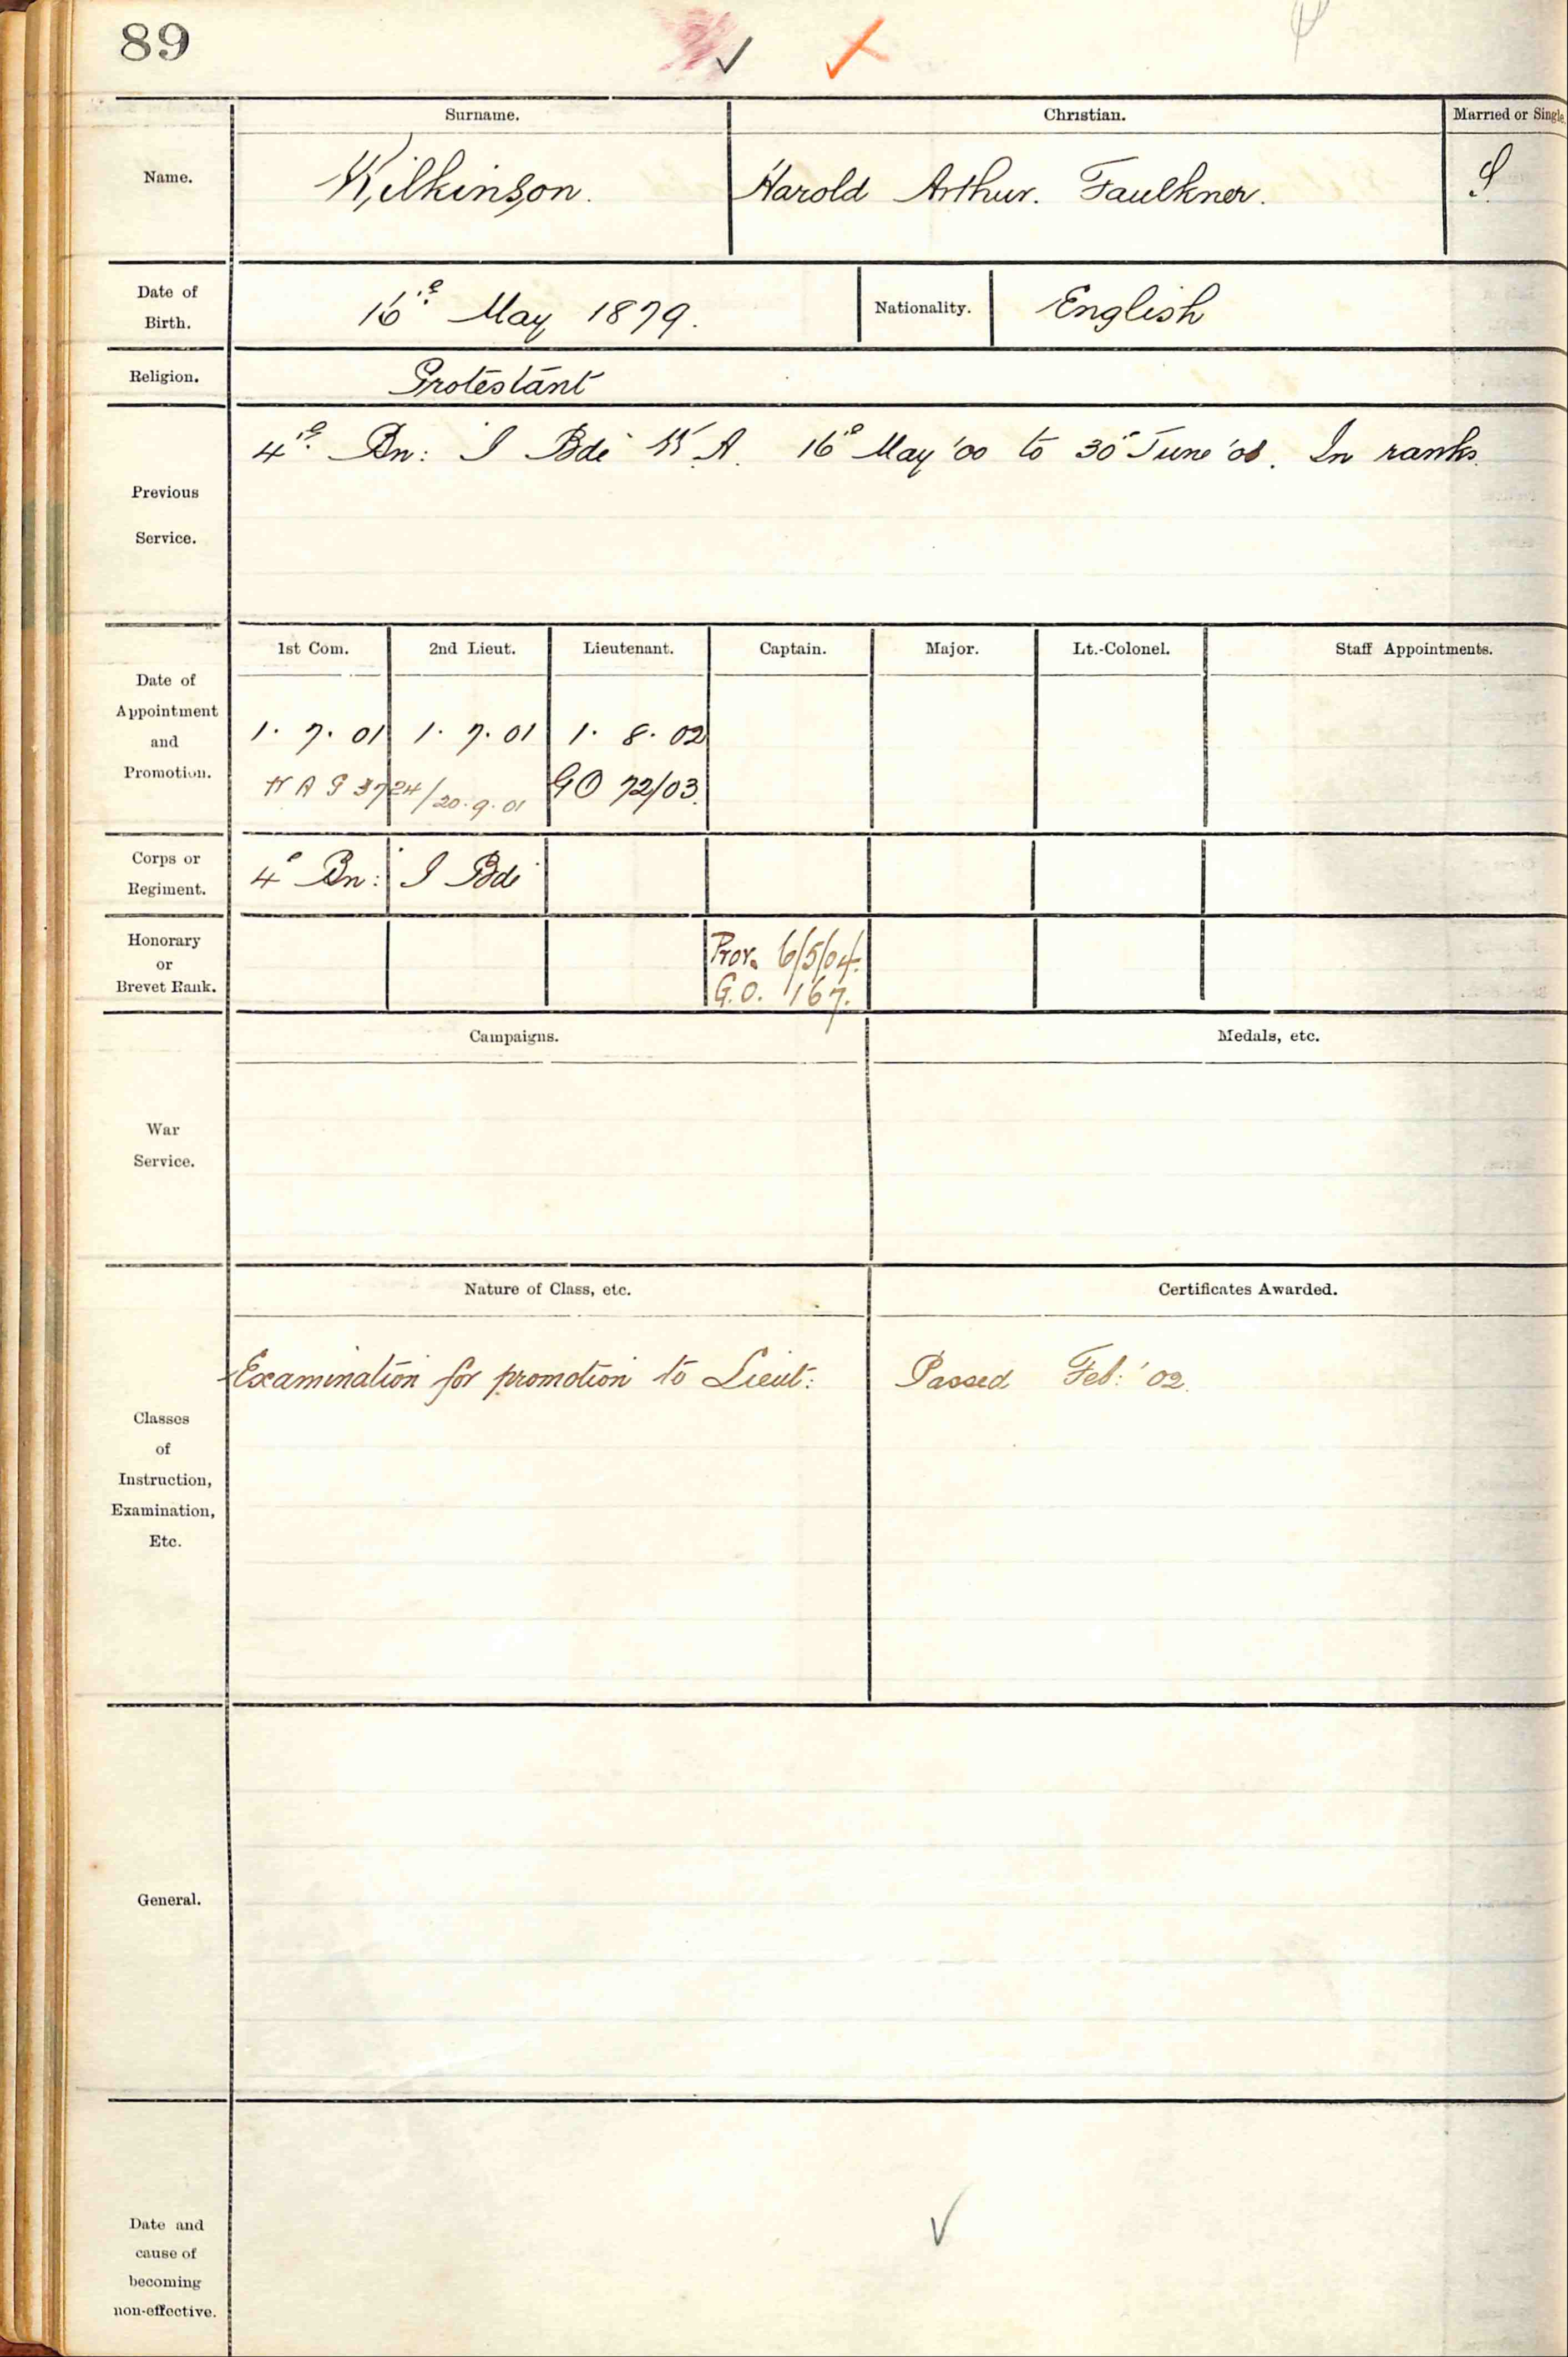 89
Surname. Christian. Married or Single
Name. Wilkinson. Harold Arthur. Faulkner. S.
Date of Birth. 16th May 1879. Nationality. English
Religion. Protestant
4th Bn: I Bde W A. 16th May '00 to 30th June '01. In ranks.
Previous
Service.
1st Com. 2nd Lieut. Lieutenant. Captain. Major. Lt.-Colonel. Staff Appointments.
Date of
Appointment
and
Promotion.
1. 7. 01 1. 7. 01 1. 8. 02
3724/20.9.01 GO 72/03.
Corps or
Regiment.
4th Bn: I Bde
Honorary
or
Brevet Rank.
Prov. 6/5/04.
G.O. 167.
Campaigns. Medals, etc.
War
Service.
Nature of Class, etc. Certificates Awarded.
Examination for promotion to Lieut: Passed Feb: '02.
Classes
of
Instruction,
Examination,
Etc.
General.
Date and
cause of
becoming
non-effective.